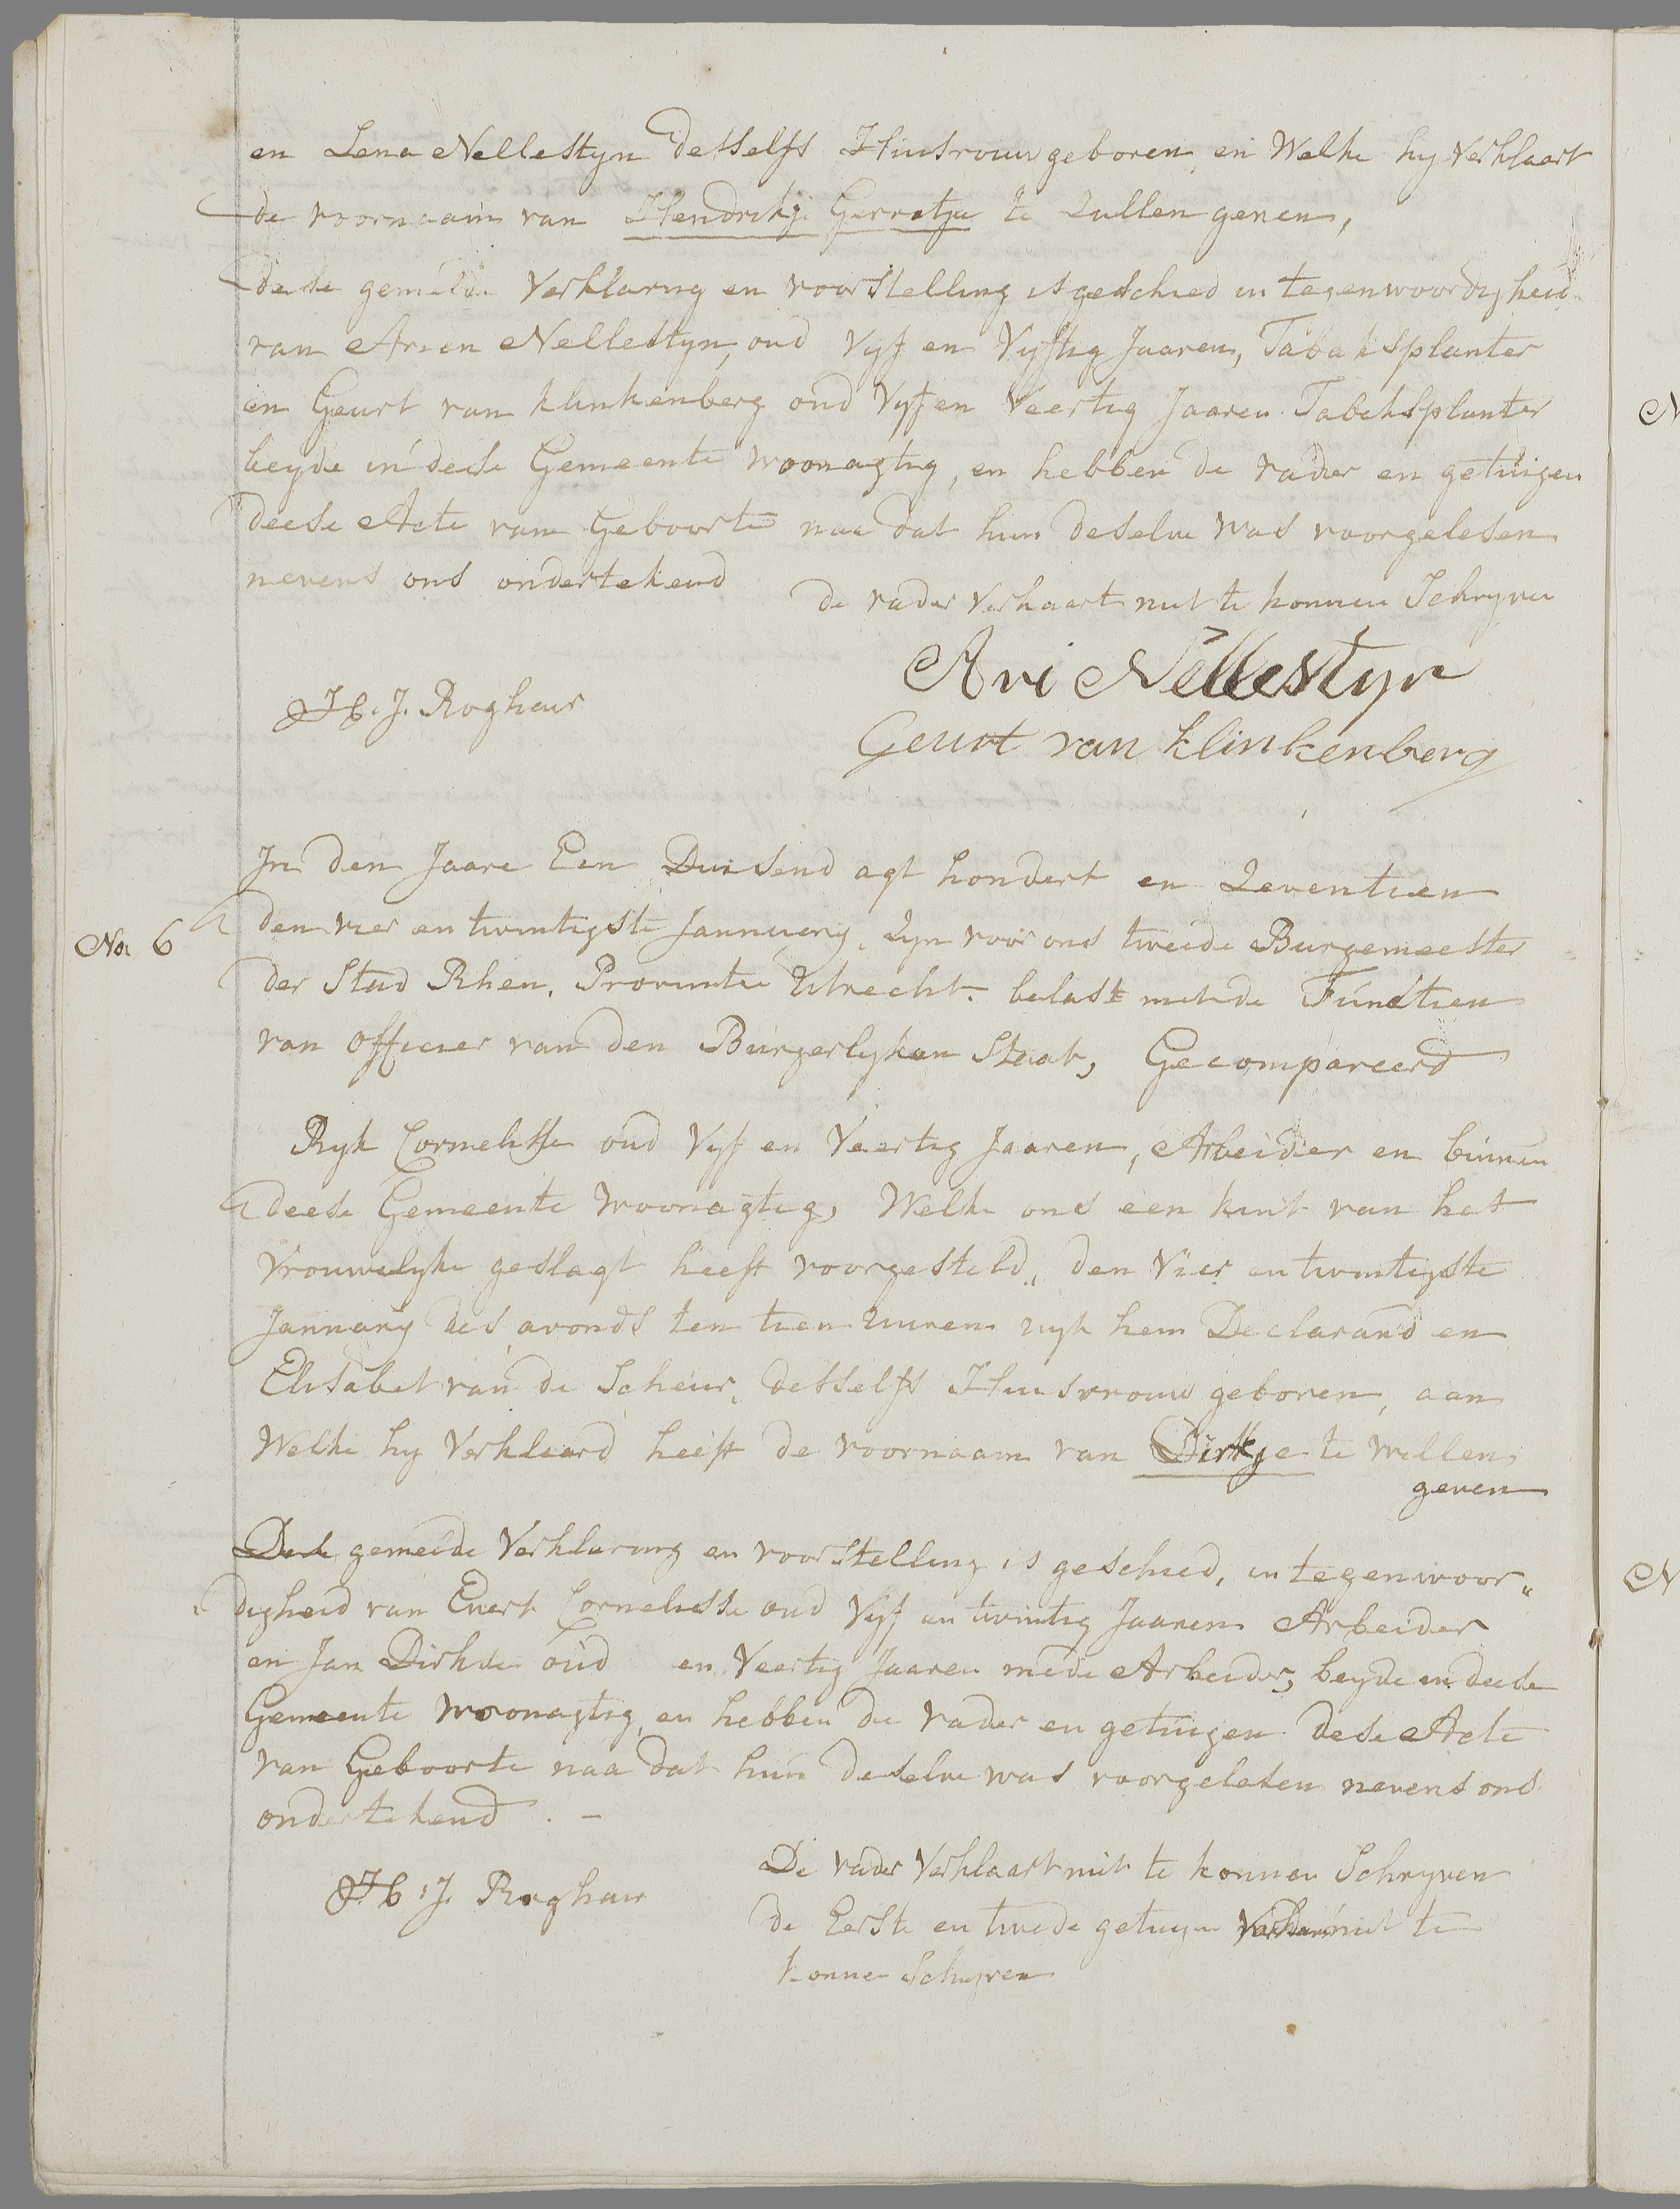 en Lena Nellestyn desselfs Huisvrouw geboren, en Welke hy Verklaert
de voornaam van Hendrikje Gerretje te zullen geven,
deese gemelde Verklaring en voorstelling is geschied in tegenwoordigheid
van Arien Nellestyn, oud Vyf en Vyftig Jaaren, Tabaksplanter
en Geurt van Klinkenberg oud Vyf en Veertig Jaaren Tabaksplanter
beyde in deese Gemeente woonagtig, en hebben de vader en getuigen
deese Acte van Geboorte naa dat hun deselve was voorgelesen
nevens ons ondertekend
de vader Verklaart niet te konnen Schryven
Ari Nellestyn
H. J. Roghair
Geurt van Klinkenberg
In den Jaare Een Duisend agt hondert en Zeventien
No. 6
den vier en twintigste Jannuarij, Zyn voor ons tweede Burgemeester
der Stad Rhen, Provintie Utrecht belast met de Functien
van officier van den Burgerlyken Staat, Gecompareerd
Ryk Cornelisse oud Vyf en Veertig Jaaren, Arbeider en binnen
deese Gemeente woonagtig, Welke ons een kint van het
Vrouwelyke geslagt heeft voorgesteld, den Vier en twintigste
Jannarij des avonds ten tien uuren uyt hem Declarand en
Elisabet van de Scheur, desselfs Huisvrouw geboren, aan
Welke hy Verklaard heeft de voornaam van Dirkje te willen
geven
Dese gemelde Verklaring en voorstelling is geschied, in tegenwoor"
digheid van Evert Cornelisse oud Vyf en twintig Jaaren Arbeider
en Jan Dirkse oud en Veertig Jaaren mede Arbeider, beyde in deese
Gemeente woonagtig, en hebben de vader en getuigen dese Acte
van Geboorte naa dat hun deselve was voorgelesen nevens ons
ondertekend. -
De vader Verklaart niet te konnen Schryven
H. J. Roghair
de Eerste en twede getuigen Verklaren niet te
konnen Schryven